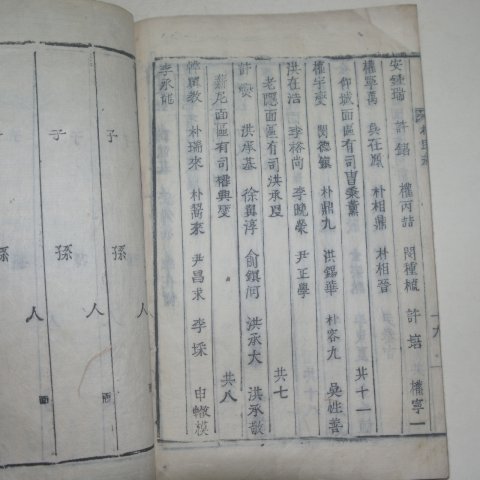 安鍾瑞 許鍩 權丙誥 閔種植 許 權寧一
權寧萬 吳在願 朴相鼎 朴相晉 共十一
仰城面區有司曹秉薰
權宇燮 閔德鎭 朴鼎九 洪錫華 朴容九 吳性善
洪在浩 李裕尚 李晩榮 尹正學 共七
老隱面區有司洪承夏
許 洪承基 徐翼淳 俞鎭 洪承大 洪承敬
嚴尼面區有司權興燮 共八
韓 敎 朴瑞來 朴 來 尹昌求 李埰 申 模
李承龍
子 孫 人
子 孫 人
子 孫 人